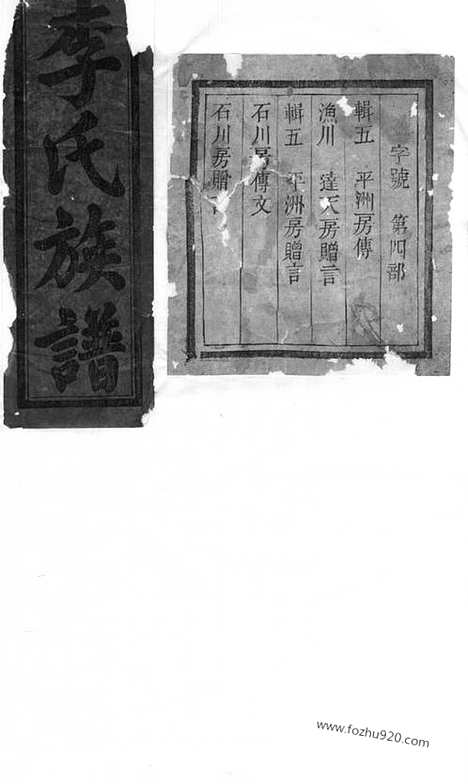 李氏族譜
字號 第四部
輯五 平洲房傳
漁川 達天房贈言
輯五 平洲房贈言
石川房傳文
石川房贈
www.fozhu920.com